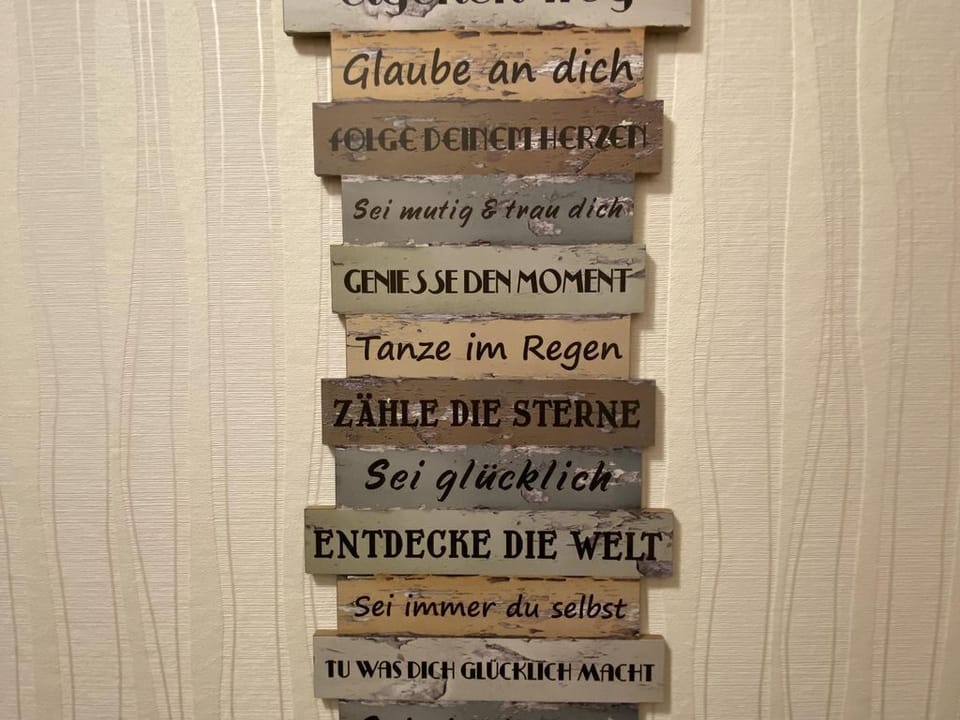 eigenen Weg
Glaube an dich
FOLGE DEINEM HERZEN
Sei mutig & trau dich
GENIESSE DEN MOMENT
Tanze im Regen
ZÄHLE DIE STERNE
Sei glücklich
ENTDECKE DIE WELT
Sei immer du selbst
TU WAS DICH GLÜCKLICH MACHT